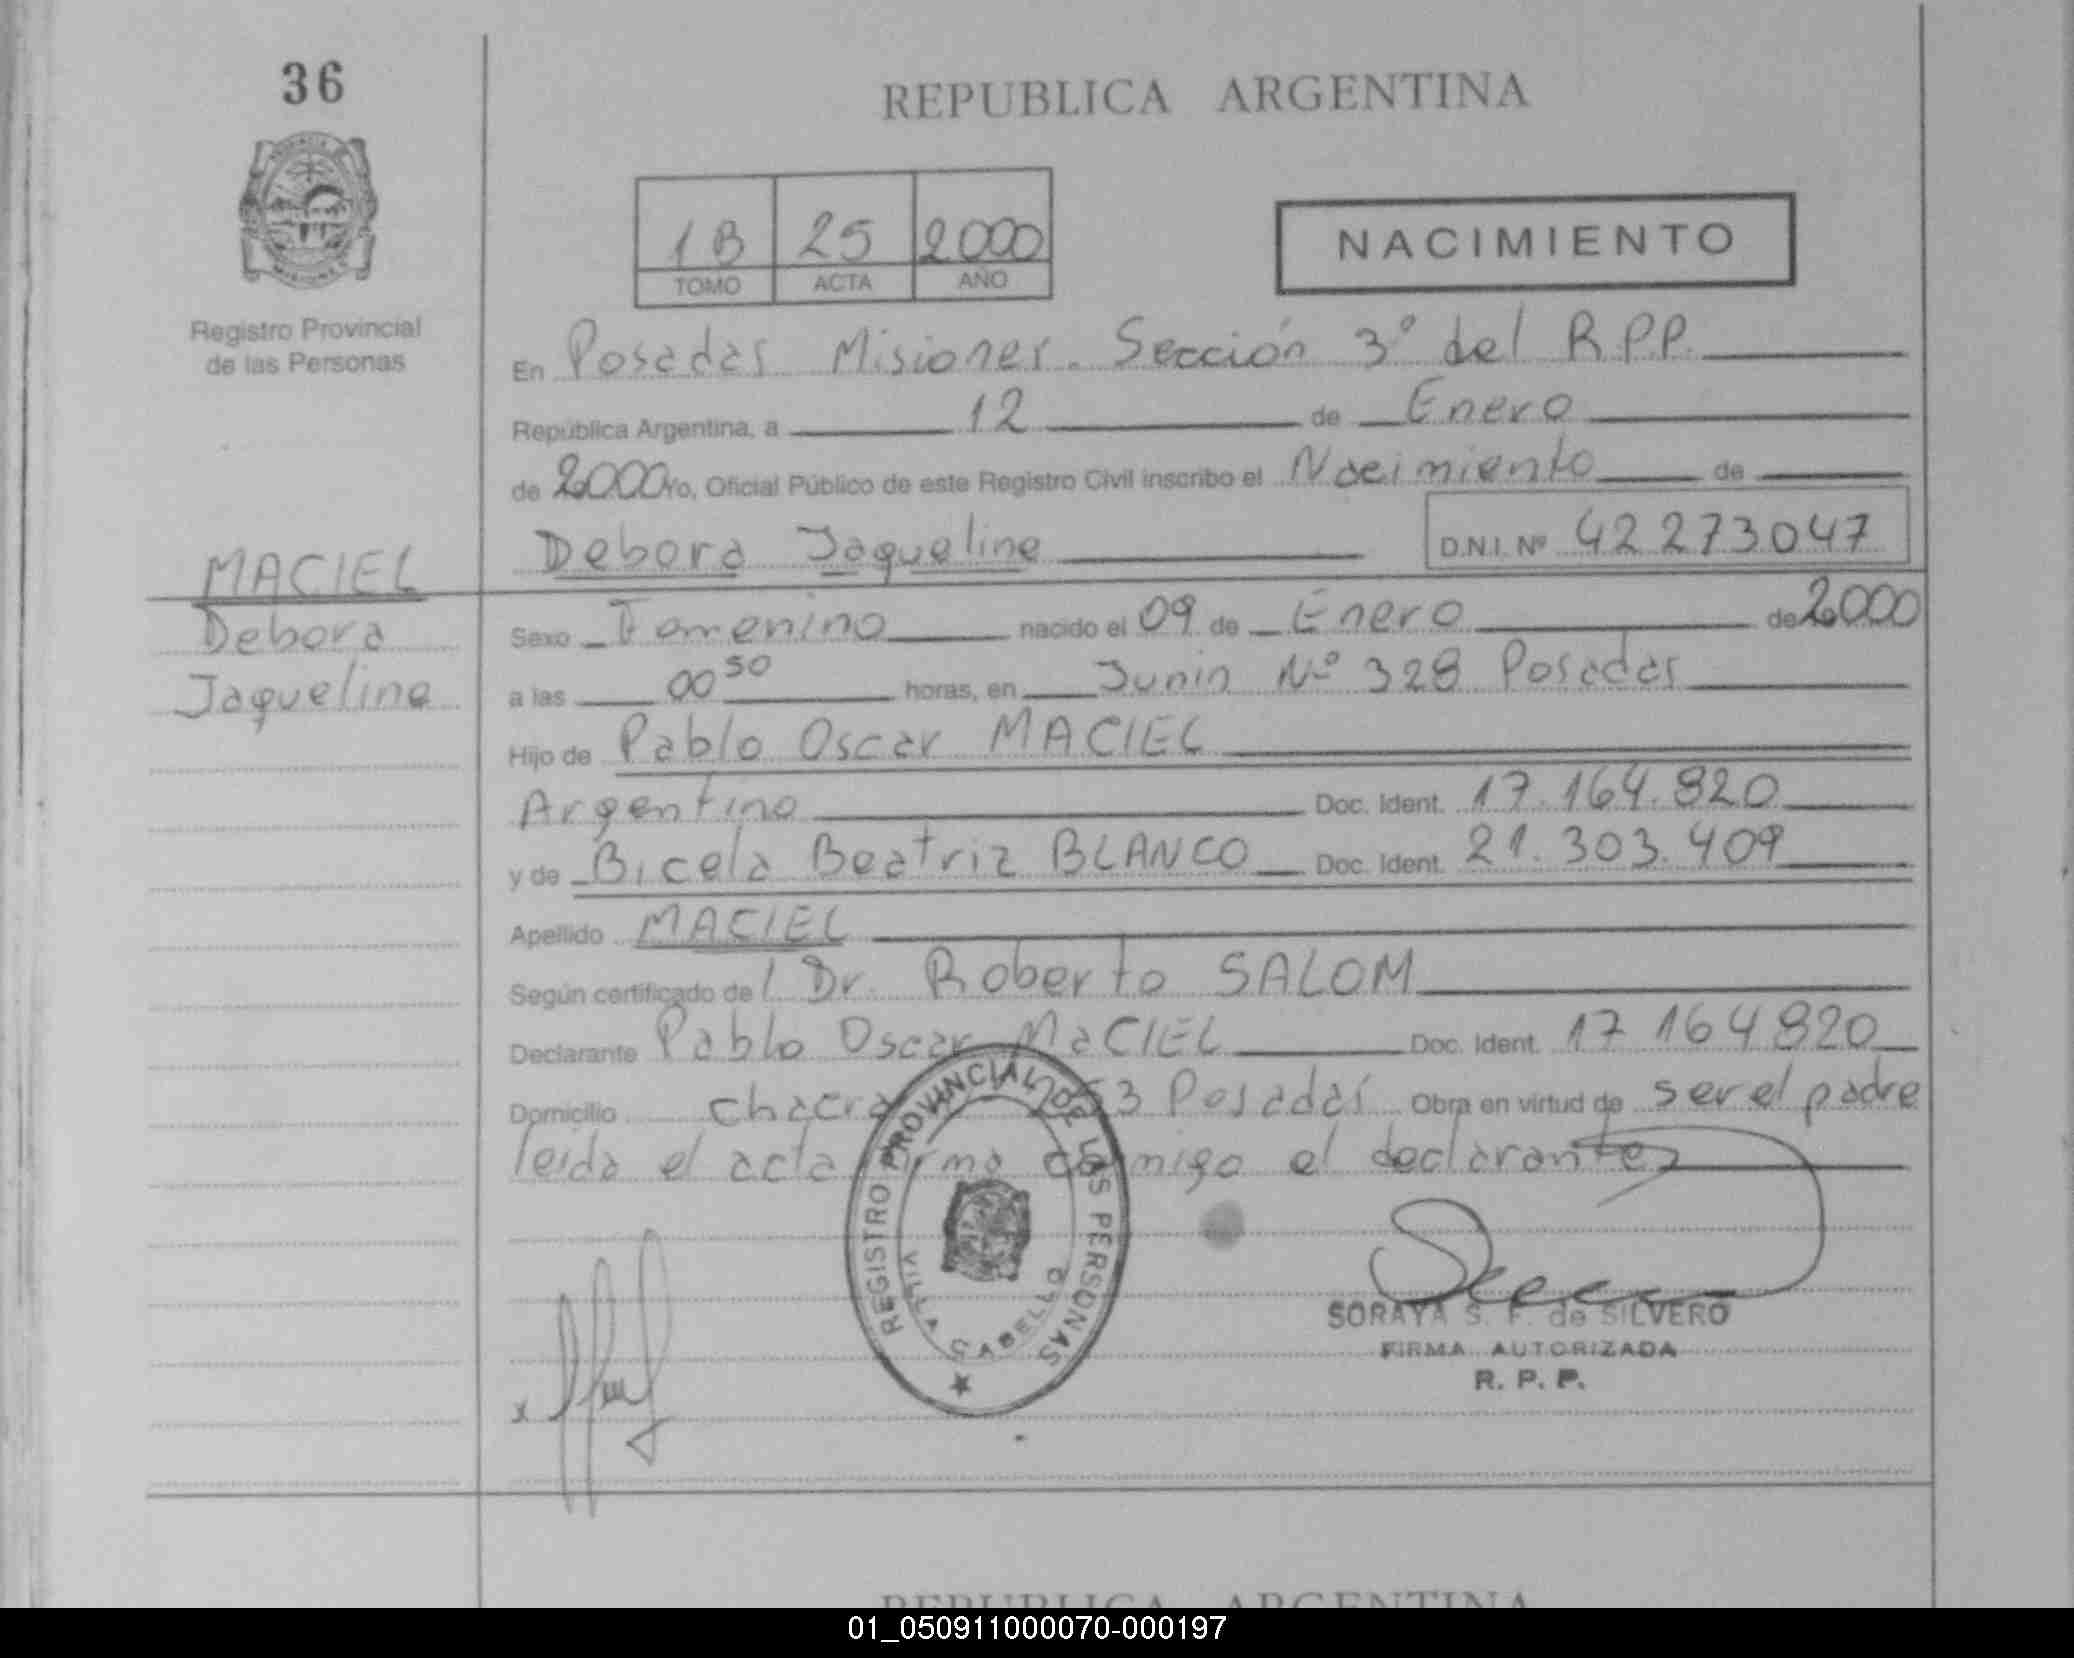 36
REPUBLICA ARGENTINA
1B 25 2000
TOMO ACTA AÑO
NACIMIENTO
Registro Provincial
de las Personas
En Posadas Misiones. Sección 3º del R.P.P.
República Argentina, a 12 de Enero
de 2000 Yo, Oficial Público de este Registro Civil inscribo el Nacimiento de
Debora Jaqueline D.N.I. Nº 42 273 047
MACIEL
Debora
Jaqueline
Sexo Femenino nacido el 09 de Enero de 2000
a las 00 50 horas, en Junin Nº 328 Posadas
Hijo de Pablo Oscar MACIEL
Argentino Doc. Ident. 17.164.820
y de Bicela Beatriz BLANCO Doc. Ident. 21.303.409
Apellido MACIEL
Según certificado del Dr. Roberto SALOM
Declarante Pablo Oscar MaCIEL Doc. Ident. 17 164 820
Domicilio chacra Posadas Obra en virtud de ser el padre
leida el acta firma conmigo el declarante
REGISTRO PROVINCIAL DE LAS PERSONAS
VILLA CABELLO
SORAYA S. F. de SILVERO
FIRMA AUTORIZADA
R. P. P.
REPUBLICA ARGENTINA
01_050911000070-000197